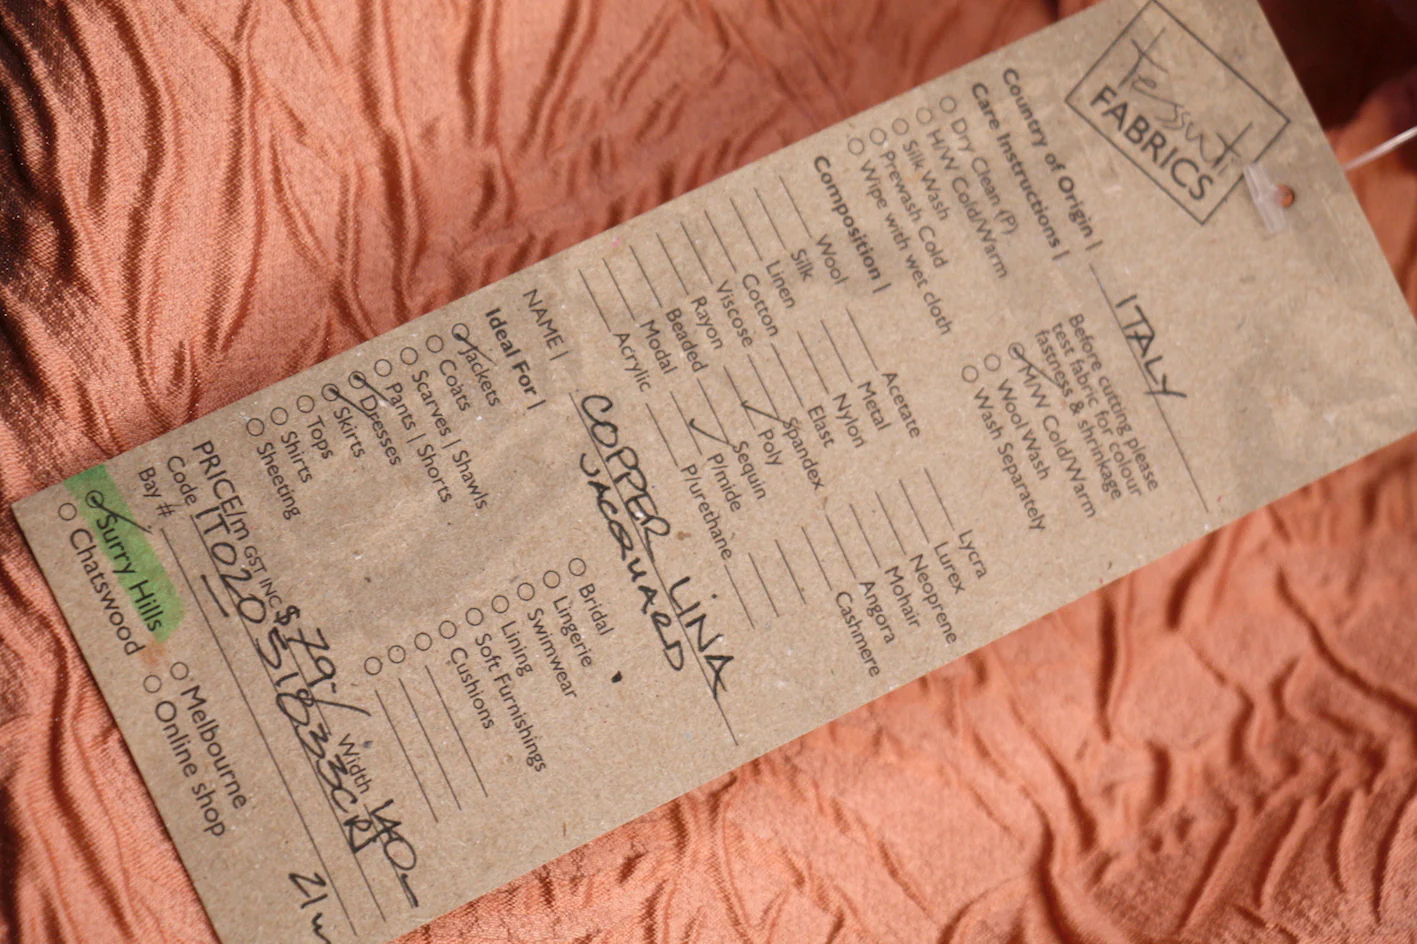 Tessuti
FABRICS
Country of Origin | ITALY
Care Instructions |
Before cutting please
test fabric for colour
fastness & shrinkage
Dry Clean (P)
H/W Cold/Warm
Silk Wash
Prewash Cold
Wipe with wet cloth
M/W Cold/Warm
Wool Wash
Wash Separately
Composition |
Wool Acetate Lycra
Silk Metal Lurex
Linen Nylon Neoprene
Cotton Elast Mohair
Viscose Spandex Angora
Rayon Poly Cashmere
Beaded Sequin
Modal P/mide
Acrylic P/urethane
NAME | COPPER LINA
JACQUARD
Ideal For |
Jackets Bridal
Coats Lingerie
Scarves | Shawls Swimwear
Pants | Shorts Lining
Dresses Soft Furnishings
Skirts Cushions
Tops
Shirts
Sheeting
PRICE/m GST INC $79-/ Width 140-
Code
Bay #
Surry Hills Melbourne
Chatswood Online shop